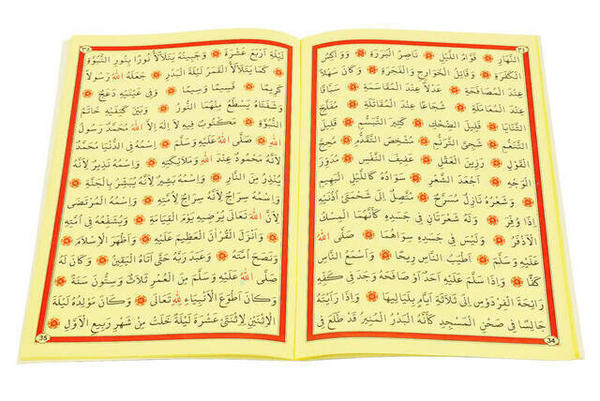 ٣٤
النَّهَارِ ۞ قَوَّامُ اللَّيْلِ ۞ نَاصِرُ الْبَرَرَةِ ۞ وَوَاكِسُ
الْكَفَرَةِ ۞ وَقَاتِلُ الْخَوَارِجِ وَالْفَجَرَةِ ۞ وَكَانَ سَهْلاً
عِنْدَ الْمُصَافَحَةِ ۞ عَدْلاً عِنْدَ الْمُقَاسَمَةِ ۞ سَبَّاقًا
عِنْدَ الْمُعَامَلَةِ ۞ شُجَاعًا عِنْدَ الْمُقَاتَلَةِ ۞ مُفَلَّجَ
الثَّنَايَا ۞ قَلِيلَ الضِّحْكِ ۞ كَثِيرَ التَّبَسُّمِ ۞ قَلِيلَ
التَّنَعُّمِ ۞ شَجِيَّ التَّرَنُّمِ ۞ مُشَخَّصَ التَّقَدُّمِ ۞ مُحْكَمَ
الْقَوْلِ ۞ رَزِينَ الْعَقْلِ ۞ عَفِيفَ النَّفْسِ ۞ مُدَوَّرَ
الْوَجْهِ ۞ اَجْعَدَ الشَّعْرِ ۞ سَوَادُهُ كَاللَّيْلِ الْبَهِيمِ
۞ وَشَعْرُهُ نَازِلٌ مُسَرَّحٌ ۞ مُتَّصِلٌ اِلَى شَحْمَتَىْ اُذُنَيْهِ
اِذَا وَفَرَ ۞ وَلَهُ شَعْرَتَانِ فِى جَسَدِهِ كَأَنَّهُمَا الْمِسْكُ
الْاَذْفَرُ ۞ وَلَيْسَ فِى جَسَدِهِ سِوَاهُمَا ۞ صَلَّى اللهُ
عَلَيْهِ وَسَلَّمَ ۞ اَطْيَبُ النَّاسِ رِيحًا ۞ وَاَسْمَحُ النَّاسِ
كَفًّا ۞ وَاِذَا سَلَّمَ عَلَيْهِ اَحَدٌ اَوْ صَافَحَهُ وَجَدَ فِى كَفِّهِ
رَائِحَةَ الْفِرْدَوْسِ اِلَى ثَلَاثَةِ اَيَّامٍ بِلَيَالِيهَا ۞ وَاِذَا رَاَيْتَهُ
جَالِسًا فِى صَحْنِ الْمَسْجِدِ كَأَنَّهُ الْبَدْرُ الْمُنِيرُ قَدْ طَلَعَ فِى
34
٣٥
لَيْلَةِ اَرْبَعَ عَشْرَةَ ۞ وَجَبِينُهُ يَتَلَأْلَأُ نُورًا بِنُورِ النُّبُوَّةِ
۞ كَمَا يَتَلَأْلَأُ الْقَمَرُ لَيْلَةَ الْبَدْرِ ۞ جَعَلَهُ اللهُ رَسُولاً
كَرِيمًا ۞ قَسِيمًا وَسِيمًا ۞ وَفِى عَيْنَيْهِ دَعَجٌ ۞
وَشَفَتَاهُ يَسْطَعُ مِنْهُمَا النُّورُ ۞ وَبَيْنَ كَتِفَيْهِ خَاتَمُ
النُّبُوَّةِ ۞ مَكْتُوبٌ فِيهِ لَا اِلَهَ اِلاَّ اللهُ مُحَمَّدٌ رَسُولُ
اللهِ ۞ صَلَّى اللهُ عَلَيْهِ وَسَلَّمَ ۞ اِسْمُهُ فِى الدُّنْيَا مُحَمَّدٌ
لِاَنَّهُ مَحْمُودٌ عِنْدَ اللهِ وَمَلَائِكَتِهِ ۞ وَاِسْمُهُ نَذِيرٌ لِاَنَّهُ
يُنْذِرُ مِنَ النَّارِ ۞ وَاِسْمُهُ بَشِيرٌ لِاَنَّهُ يُبَشِّرُ بِالْجَنَّةِ ۞
وَاِسْمُهُ سِرَاجٌ لِاَنَّهُ سِرَاجٌ لِاُمَّتِهِ ۞ وَاِسْمُهُ الْمُرْتَضَى
لِاَنَّ اللهَ تَعَالَى يُرْضِيهِ يَوْمَ الْقِيَامَةِ ۞ وَيُشَفِّعُهُ فِى اُمَّتِهِ
۞ وَاَنْزَلَ الْقُرْآنَ الْعَظِيمَ عَلَيْهِ ۞ وَاَظْهَرَ الْاِسْلَامَ ۞
وَنَصَحَ اُمَّتَهُ ۞ وَعَبَدَ رَبَّهُ حَتَّى اَتَاهُ الْيَقِينُ ۞ وَكَانَ لَهُ
صَلَّى اللهُ عَلَيْهِ وَسَلَّمَ مِنَ الْعُمْرِ ثَلَاثٌ وَسِتُّونَ سَنَةً ۞
وَكَانَ اَطْوَعَ الْاَنْبِيَاءِ لِلهِ تَعَالَى ۞ وَكَانَ مَوْلِدُهُ لَيْلَةَ
الْاِثْنَيْنِ لِاثْنَتَىْ عَشْرَةَ لَيْلَةً خَلَتْ مِنْ شَهْرِ رَبِيعِ الْاَوَّلِ ۞
35